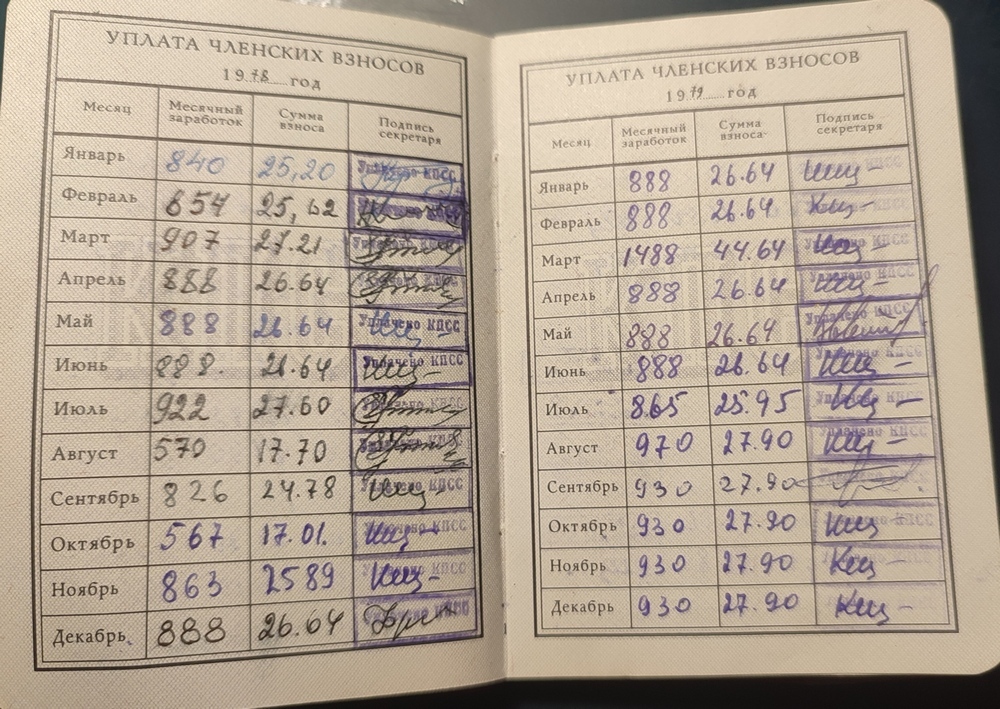 УПЛАТА ЧЛЕНСКИХ ВЗНОСОВ
1978 год
Месяц Месячный заработок Сумма взноса Подпись секретаря
Январь 840 25,20 Уплачено КПСС
Февраль 654 25,62
Март 907 27.21 Уплачено КПСС
Апрель 888 26.64 Уплачено КПСС
Май 888 26.64 Уплачено КПСС
Июнь 888. 26.64 Уплачено КПСС
Июль 922 27.60 Уплачено КПСС
Август 570 17.70 Уплачено КПСС
Сентябрь 826 24.78 Уплачено КПСС
Октябрь 567 17.01. Уплачено КПСС
Ноябрь 863 2589 Уплачено КПСС
Декабрь 888 26.64 Уплачено КПСС
УПЛАТА ЧЛЕНСКИХ ВЗНОСОВ
1979 год
Месяц Месячный заработок Сумма взноса Подпись секретаря
Январь 888 26.64 Уплачено КПСС
Февраль 888 26.64 Уплачено КПСС
Март 1488 44.64 Уплачено КПСС
Апрель 888 26.64 Уплачено КПСС
Май 888 26.64 Уплачено КПСС
Июнь 888 26.64 Уплачено КПСС
Июль 865 25.95 Уплачено КПСС
Август 970 27.90 Уплачено КПСС
Сентябрь 930 27.90 Уплачено КПСС
Октябрь 930 27.90 Уплачено КПСС
Ноябрь 930 27.90
Декабрь 930 27.90